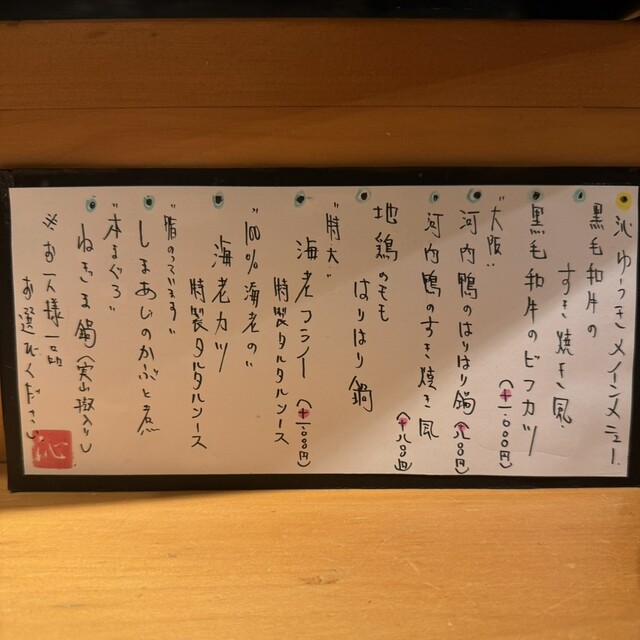 沁ゆうきメインメニュー
黒毛和牛の
すき焼き風
黒毛和牛のビフカツ
(+一、000円)
"大阪"
河内鴨のはりはり鍋
(+八00円)
河内鴨のすき焼き風
(+八00円)
地鶏のモモ
はりはり鍋
"特大"
海老フライ
(+一、000円)
特製タルタルソース
"100%海老の"
海老カツ
特製タルタルソース
"脂のっています"
しまあじのかぶと煮
"本まぐろ"
ねぎま鍋(実山椒入り)
※お一人様一品
お選びください
沁